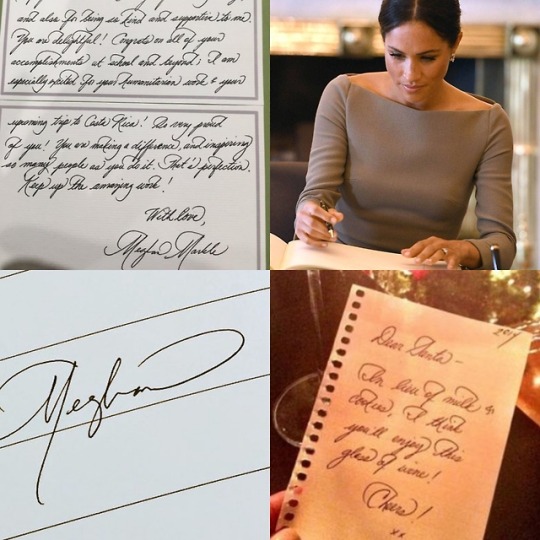 and also for being so kind and supportive to me.
You are delightful! Congrats on all of your
accomplishments at school and beyond; I am
especially excited for your humanitarian work & your
upcoming trip to Costa Rica! I'm very proud
of you! You are making a difference, and inspiring
so many people as you do it. That's perfection.
Keep up the amazing work!
With love,
Meghan Markle
Meghan
Dear Santa -
In lieu of milk &
cookies, I think
you'll enjoy this
glass of wine!
Cheers!
xx